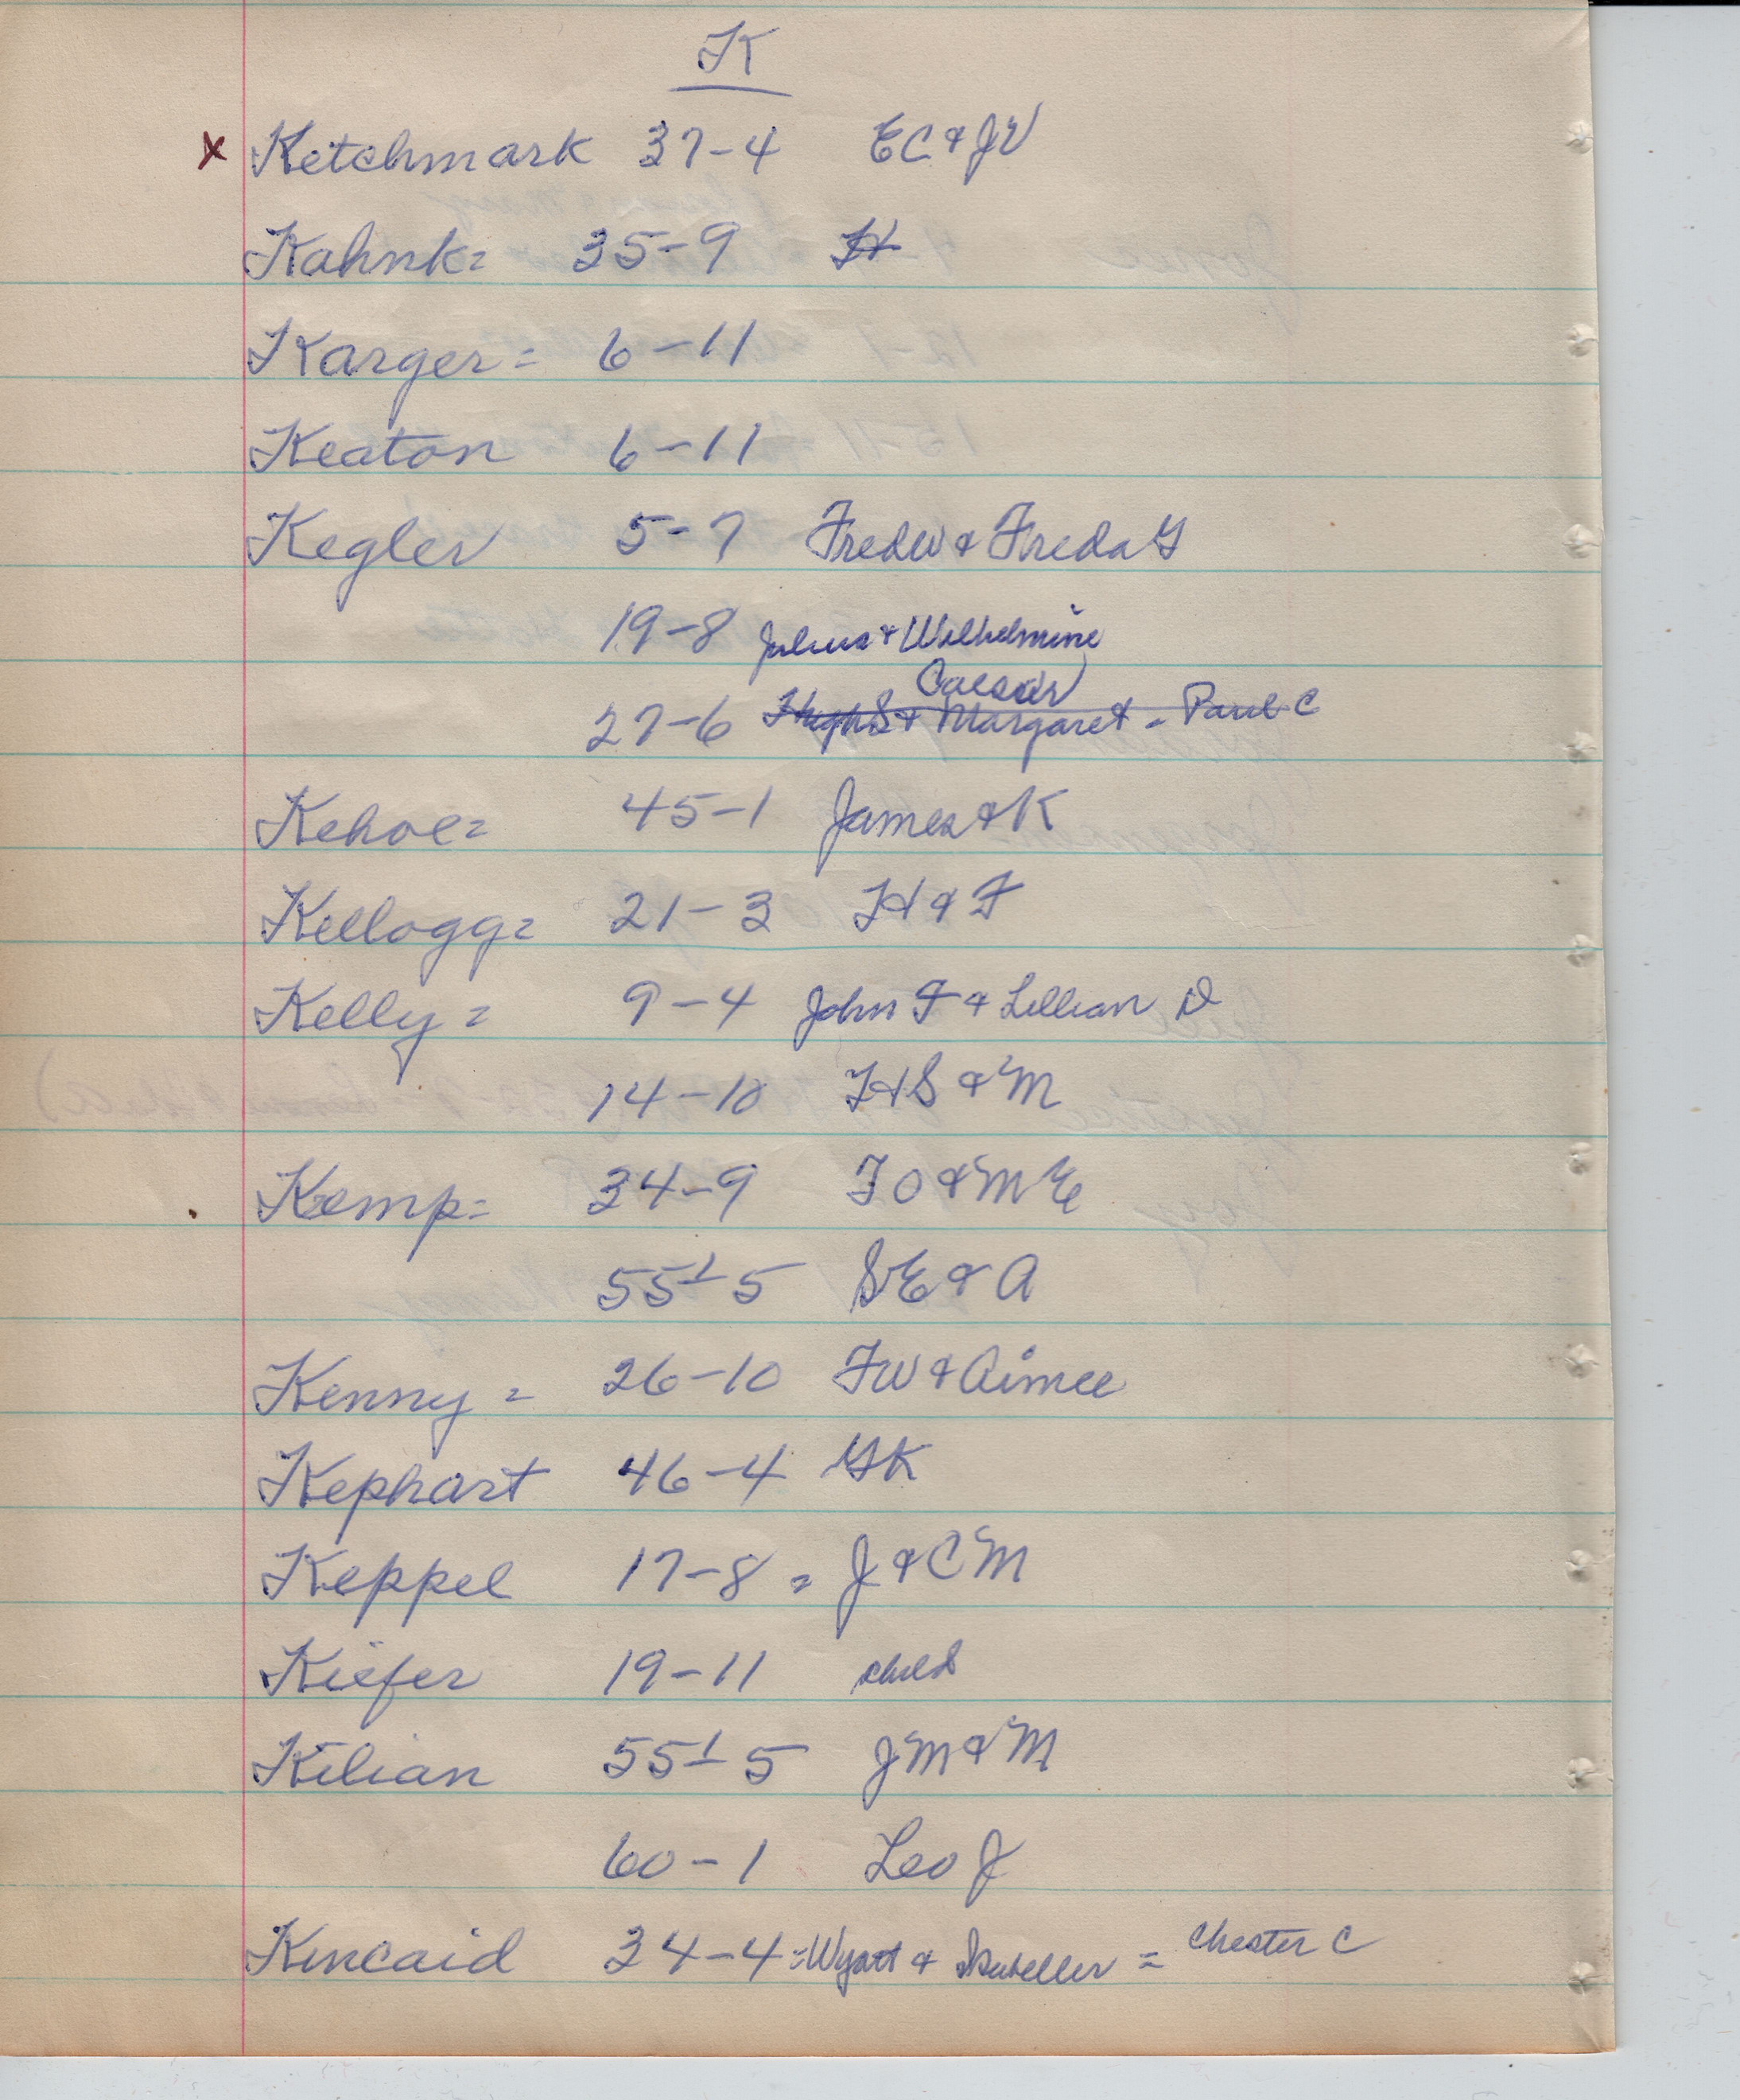 K
x Ketchmark 37-4 EC & JV
Kahnk= 35-9 H
Karger= 6-11
Keaton 6-11
Kegler 5-7 Fred W & Freda G
19-8 Julius & Wilhelmine
Caesar
27-6 Hugh S & Margaret - Paul C
Kehoe= 45-1 James & K
Kellogg= 21-3 H & F
Kelly= 9-4 John F & Lillian D
14-10 HS & M
Kemp= 34-9 FO & ME
55½-5 SE & A
Kenny= 26-10 FW & Aimee
Kephart 46-4 GK
Keppel 17-8 = J & CM
Kiefer 19-11 child
Kilian 55½-5 JM & M
60-1 Leo J
Kincaid 34-4 = Wyatt & = Chester C